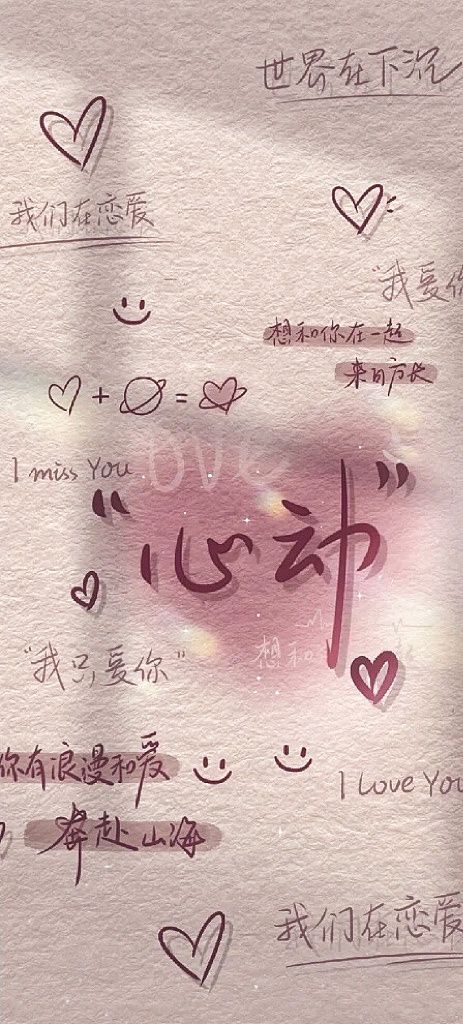 世界在下沉
我们在恋爱
"我爱你
想和你在一起
来日方长
+ =
I miss You
Love
"心动"
想和
"我只爱你"
你有浪漫和爱
I Love You
奔赴山海
我们在恋爱